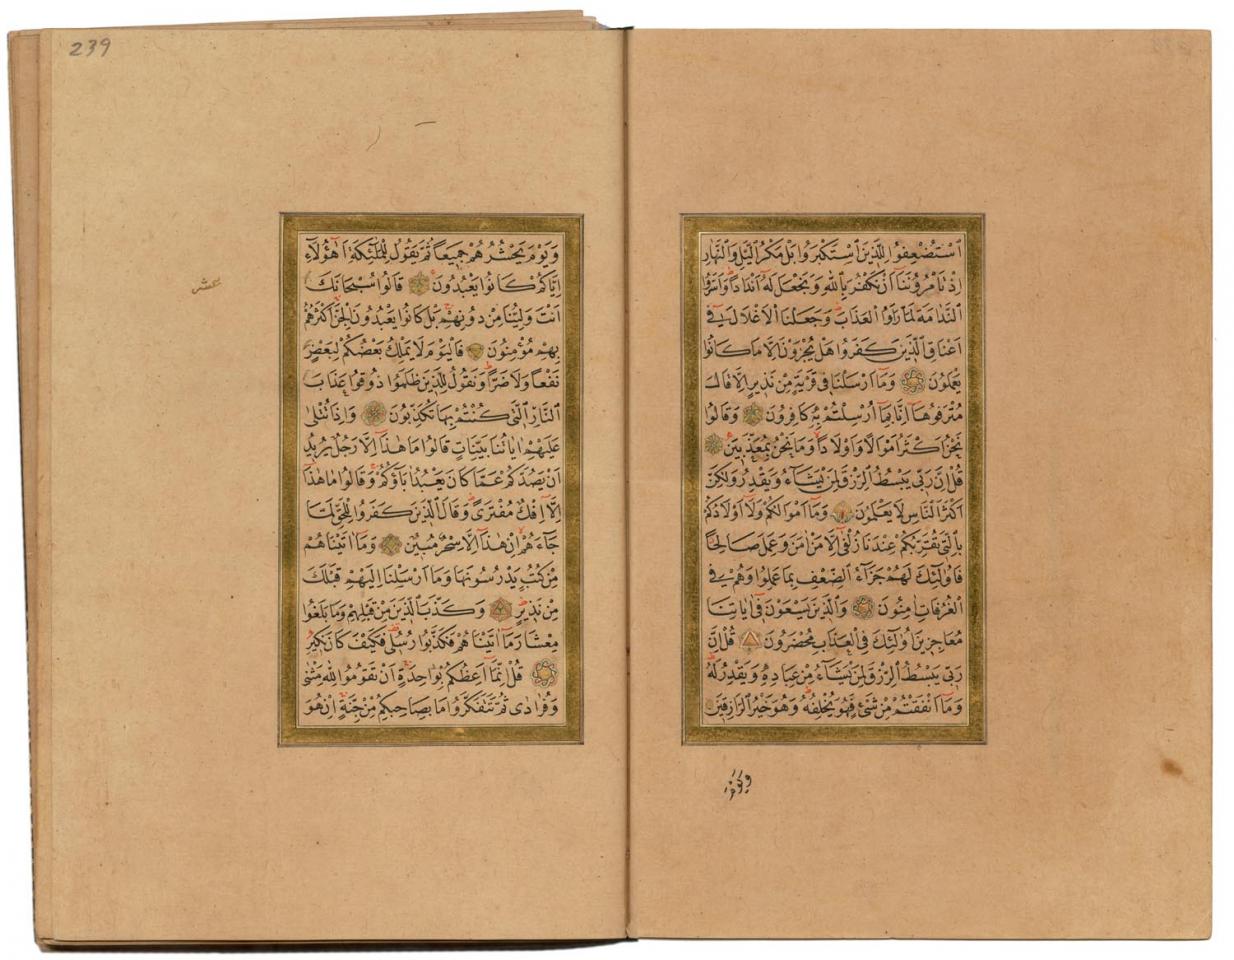 اسْتُضْعِفُوا لِلَّذِينَ اسْتَكْبَرُوا بَلْ مَكْرُ الَّيْلِ وَالنَّهَارِ
اِذْ تَأْمُرُونَنَا اَنْ نَكْفُرَ بِاللهِ وَنَجْعَلَ لَهُ اَنْدَاداً وَاَسَرُّوا
النَّدَامَةَ لَمَّا رَاَوُا الْعَذَابَ وَجَعَلْنَا الْاَغْلَالَ فِي
اَعْنَاقِ الَّذِينَ كَفَرُوا هَلْ يُجْزَوْنَ اِلَّا مَا كَانُوا
يَعْمَلُونَ وَمَا اَرْسَلْنَا فِي قَرْيَةٍ مِنْ نَذِيرٍ اِلَّا قَالَ
مُتْرَفُوهَا اِنَّا بِمَا اُرْسِلْتُمْ بِهِ كَافِرُونَ وَقَالُوا
نَحْنُ اَكْثَرُ اَمْوَالًا وَاَوْلَاداً وَمَا نَحْنُ بِمُعَذَّبِينَ
قُلْ اِنَّ رَبِّي يَبْسُطُ الرِّزْقَ لِمَنْ يَشَاءُ وَيَقْدِرُ وَلٰكِنَّ
اَكْثَرَ النَّاسِ لَا يَعْلَمُونَ وَمَا اَمْوَالُكُمْ وَلَا اَوْلَادُكُمْ
بِالَّتِي تُقَرِّبُكُمْ عِنْدَنَا زُلْفٰى اِلَّا مَنْ اٰمَنَ وَعَمِلَ صَالِحًا
فَاُولٰئِكَ لَهُمْ جَزَاءُ الضِّعْفِ بِمَا عَمِلُوا وَهُمْ فِي
الْغُرُفَاتِ اٰمِنُونَ وَالَّذِينَ يَسْعَوْنَ فِي اٰيَاتِنَا
مُعَاجِزِينَ اُولٰئِكَ فِي الْعَذَابِ مُحْضَرُونَ قُلْ اِنَّ
رَبِّي يَبْسُطُ الرِّزْقَ لِمَنْ يَشَاءُ مِنْ عِبَادِهِ وَيَقْدِرُ لَهُ
وَمَا اَنْفَقْتُمْ مِنْ شَيْءٍ فَهُوَ يُخْلِفُهُ وَهُوَ خَيْرُ الرَّازِقِينَ
وَيَوْمَ
239
عشر
وَيَوْمَ يَحْشُرُهُمْ جَمِيعاً ثُمَّ يَقُولُ لِلْمَلٰئِكَةِ اَهٰؤُلَاءِ
اِيَّاكُمْ كَانُوا يَعْبُدُونَ قَالُوا سُبْحَانَكَ
اَنْتَ وَلِيُّنَا مِنْ دُونِهِمْ بَلْ كَانُوا يَعْبُدُونَ الْجِنَّ اَكْثَرُهُمْ
بِهِمْ مُؤْمِنُونَ فَالْيَوْمَ لَا يَمْلِكُ بَعْضُكُمْ لِبَعْضٍ
نَفْعاً وَلَا ضَرّاً وَنَقُولُ لِلَّذِينَ ظَلَمُوا ذُوقُوا عَذَابَ
النَّارِ الَّتِي كُنْتُمْ بِهَا تُكَذِّبُونَ وَاِذَا تُتْلٰى
عَلَيْهِمْ اٰيَاتُنَا بَيِّنَاتٍ قَالُوا مَا هٰذَا اِلَّا رَجُلٌ يُرِيدُ
اَنْ يَصُدَّكُمْ عَمَّا كَانَ يَعْبُدُ اٰبَاؤُكُمْ وَقَالُوا مَا هٰذَا
اِلَّا اِفْكٌ مُفْتَرًى وَقَالَ الَّذِينَ كَفَرُوا لِلْحَقِّ لَمَّا
جَاءَهُمْ اِنْ هٰذَا اِلَّا سِحْرٌ مُبِينٌ وَمَا اٰتَيْنَاهُمْ
مِنْ كُتُبٍ يَدْرُسُونَهَا وَمَا اَرْسَلْنَا اِلَيْهِمْ قَبْلَكَ
مِنْ نَذِيرٍ وَكَذَّبَ الَّذِينَ مِنْ قَبْلِهِمْ وَمَا بَلَغُوا
مِعْشَارَ مَا اٰتَيْنَاهُمْ فَكَذَّبُوا رُسُلِي فَكَيْفَ كَانَ نَكِيرِ
قُلْ اِنَّمَا اَعِظُكُمْ بِوَاحِدَةٍ اَنْ تَقُومُوا لِلّٰهِ مَثْنٰى
وَفُرَادٰى ثُمَّ تَتَفَكَّرُوا مَا بِصَاحِبِكُمْ مِنْ جِنَّةٍ اِنْ هُوَ